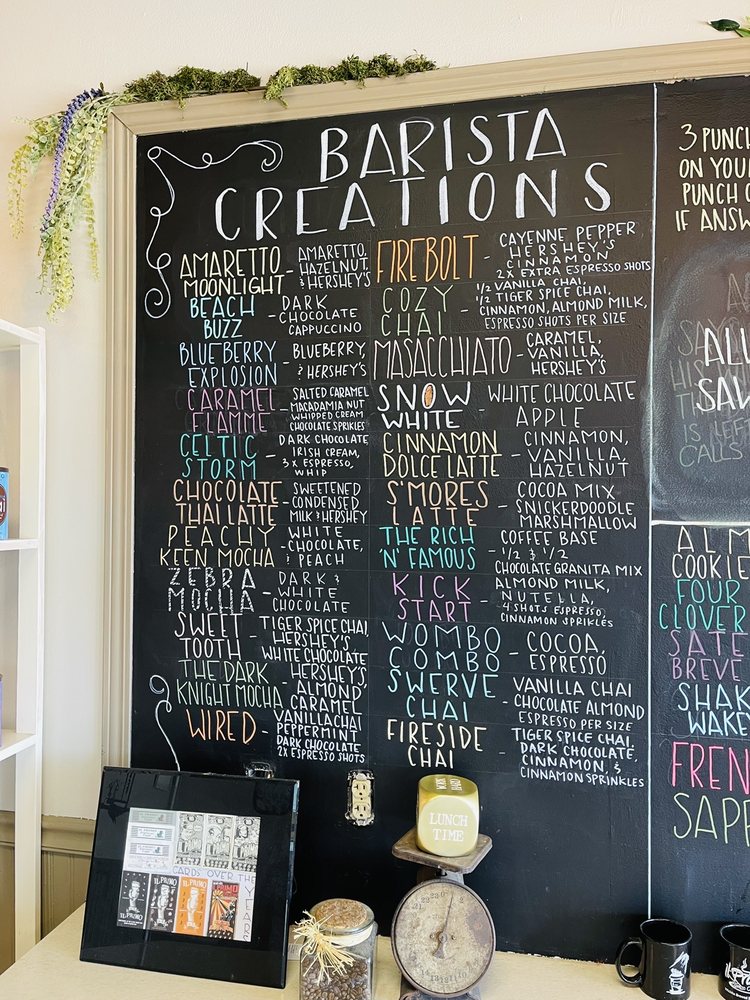 BARISTA
CREATIONS
AMARETTO
MOONLIGHT
- AMARETTO,
HAZELNUT,
& HERSHEY'S
BEACH
BUZZ
- DARK
CHOCOLATE
CAPPUCCINO
BLUEBERRY
EXPLOSION
- BLUEBERRY,
& HERSHEY'S
CARAMEL
FLAMME
- SALTED CARAMEL
MACADAMIA NUT
WHIPPED CREAM
CHOCOLATE SPRIKLES
CELTIC
STORM
- DARK CHOCOLATE
IRISH CREAM,
3X ESPRESSO,
WHIP
CHOCOLATE
THAI LATTE
- SWEETENED
CONDENSED
MILK & HERSHEY
PEACHY
KEEN MOCHA
- WHITE
CHOCOLATE,
& PEACH
ZEBRA
MOCHA
- DARK &
WHITE
CHOCOLATE
SWEET
TOOTH
- TIGER SPICE CHAI,
HERSHEY'S,
WHITE CHOCOLATE
THE DARK
KNIGHT MOCHA
- HERSHEY'S,
ALMOND,
CARAMEL
WIRED
- VANILLA CHAI
PEPPERMINT
DARK CHOCOLATE
2X ESPRESSO SHOTS
FIREBOLT
- CAYENNE PEPPER
HERSHEY'S
CINNAMON
2 X EXTRA ESPRESSO SHOTS
COZY
CHAI
- 1/2 VANILLA CHAI,
1/2 TIGER SPICE CHAI,
CINNAMON, ALMOND MILK,
ESPRESSO SHOTS PER SIZE
MASACCHIATO
- CARAMEL,
VANILLA,
HERSHEY'S
SNOW
WHITE
- WHITE CHOCOLATE
APPLE
CINNAMON
DOLCE LATTE
- CINNAMON,
VANILLA,
HAZELNUT
S'MORES
LATTE
- COCOA MIX
SNICKERDOODLE
MARSHMALLOW
THE RICH
'N' FAMOUS
- COFFEE BASE
1/2 & 1/2
CHOCOLATE GRANITA MIX
KICK
START
- ALMOND MILK,
NUTELLA,
4 SHOTS ESPRESSO,
CINNAMON SPRIKLES
WOMBO
COMBO
- COCOA,
ESPRESSO
SWERVE
CHAI
- VANILLA CHAI
CHOCOLATE ALMOND
ESPRESSO PER SIZE
FIRESIDE
CHAI
- TIGER SPICE CHAI,
DARK CHOCOLATE,
CINNAMON, &
CINNAMON SPRINKLES
3 PUNC
ON YOU
PUNCH
IF ANSW
ALL
SAW
IS LEF
CALLS
ALM
COOKIE
FOUR
CLOVER
SATE
BREVE
SHAK
WAKE
FREN
SAPP
LUNCH
TIME
CARDS OVER THE
YEARS
IL PRIMO
IL PRIMO
IL PRIMO